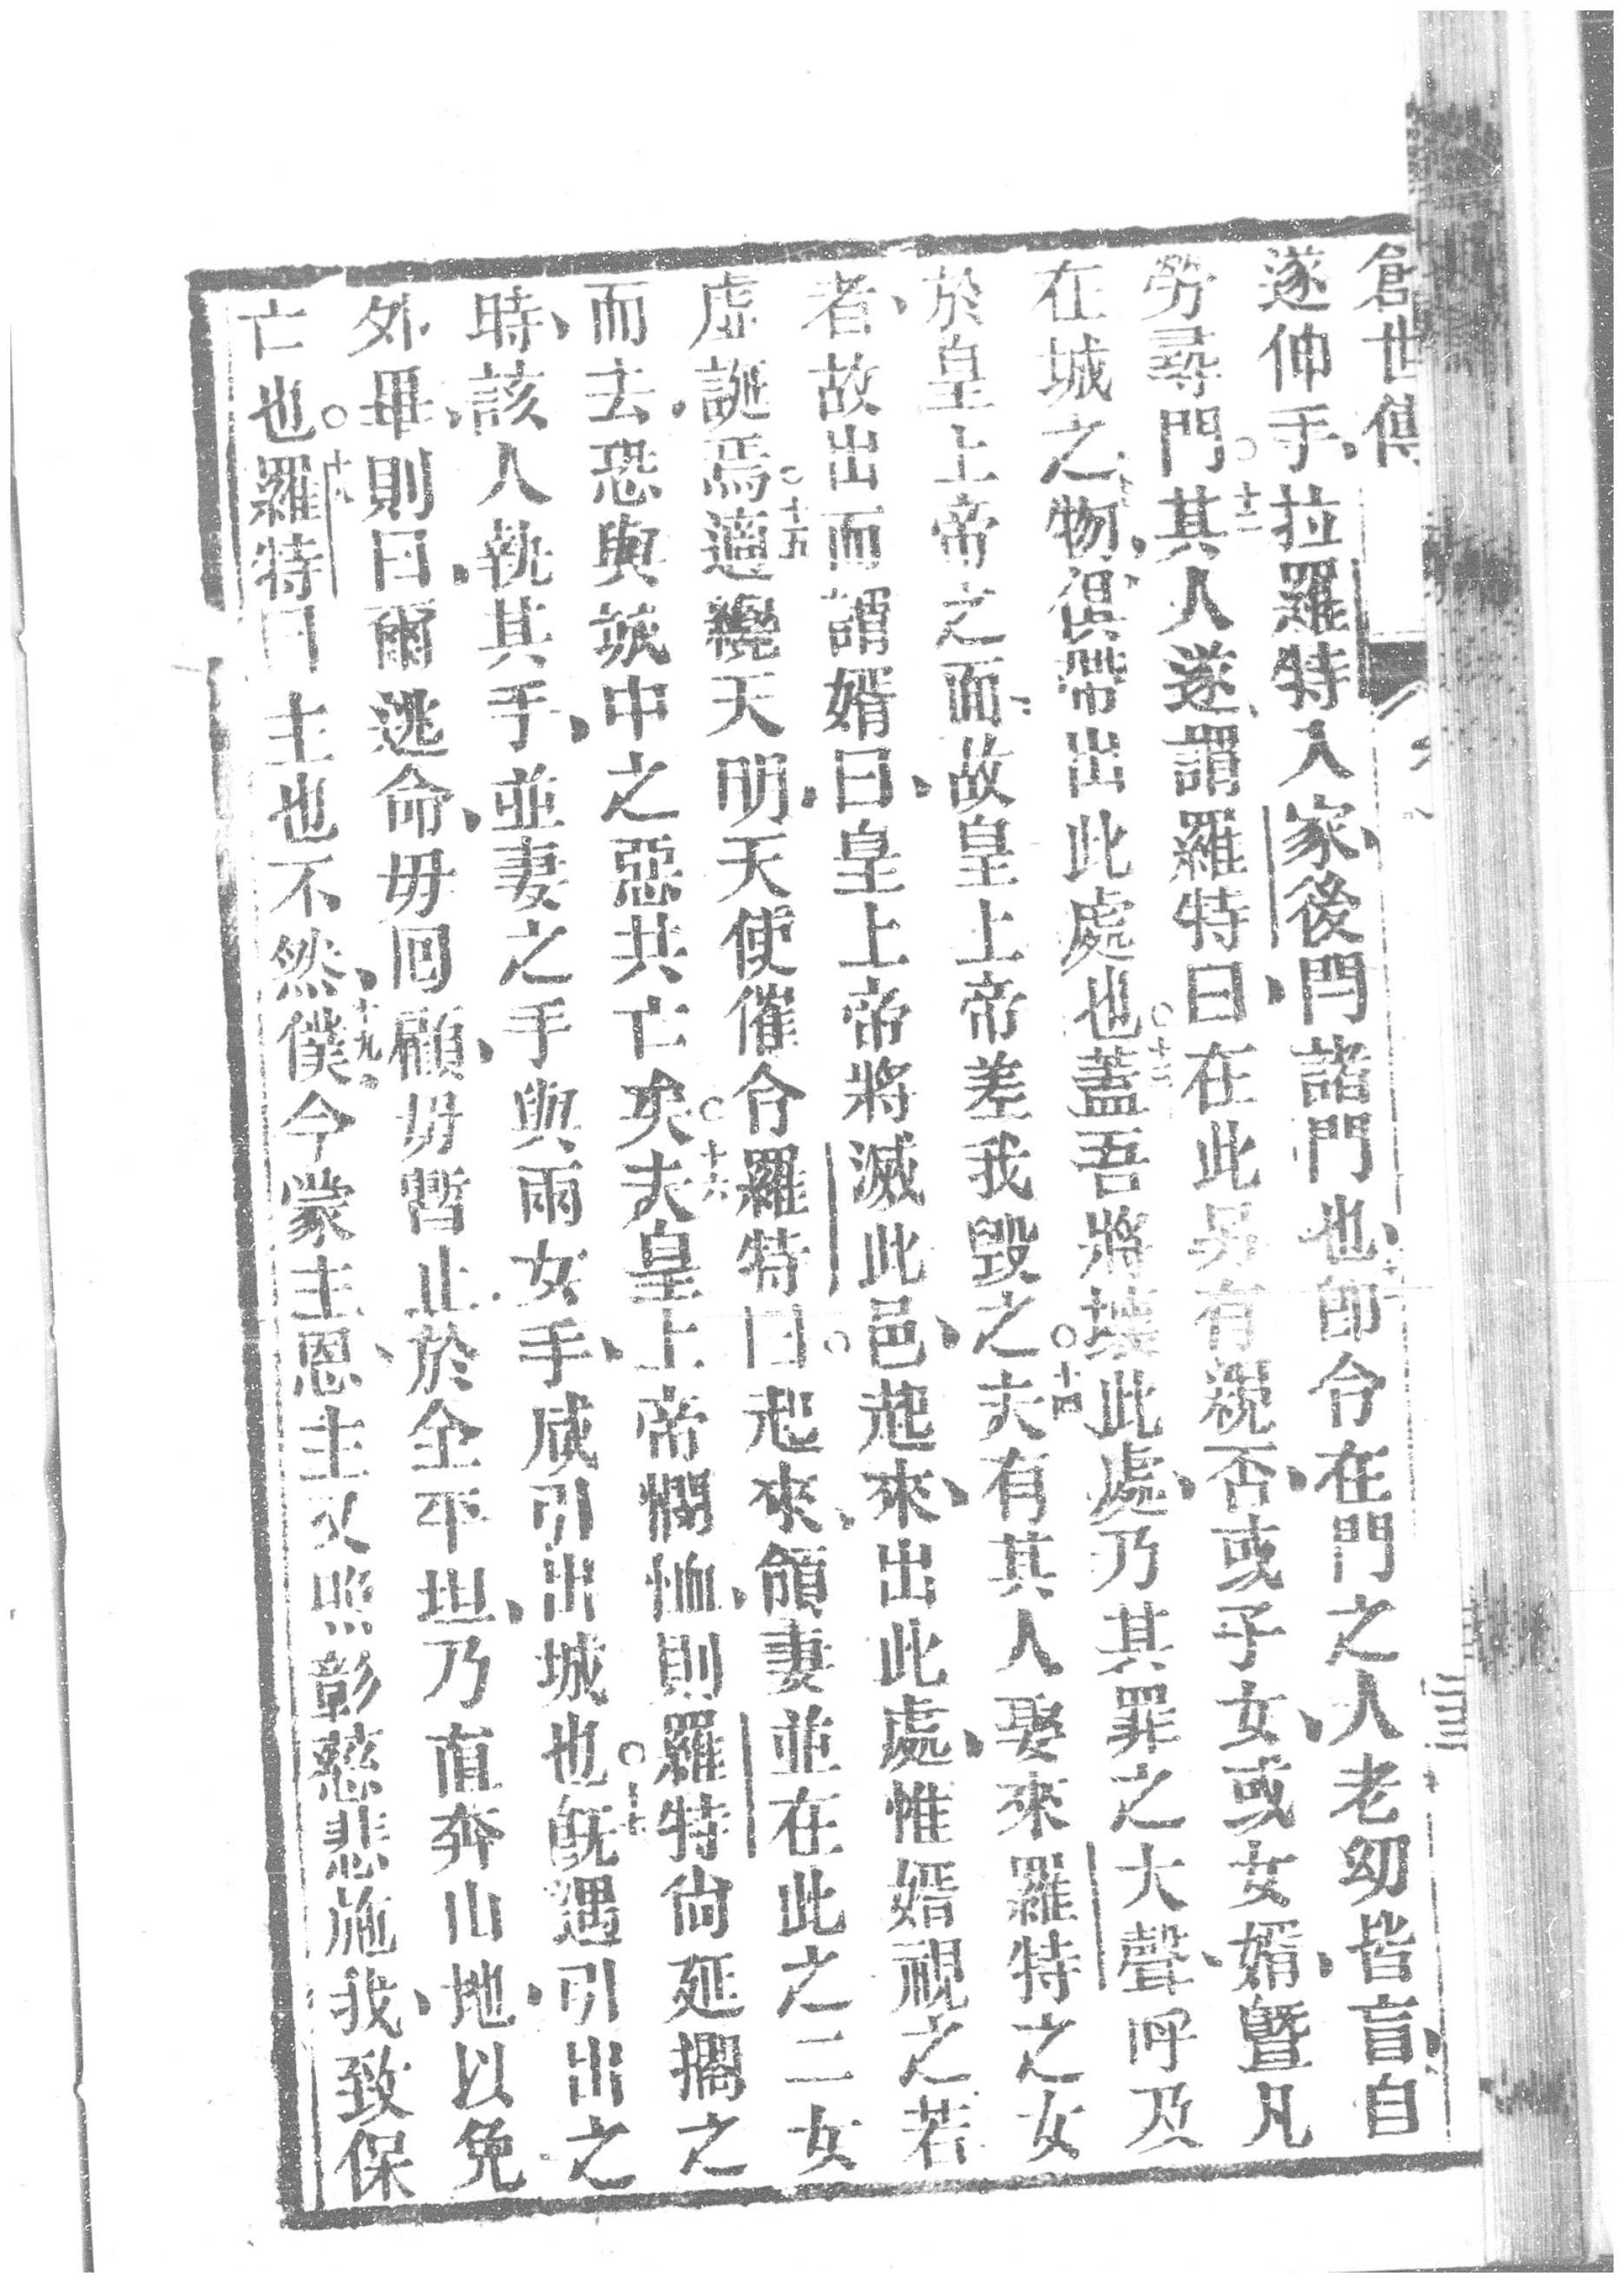 創世傳
遂伸手、拉羅特入家、後閂諸門也、即令在門之人老幼皆盲、自
勞尋門。十二其人遂謂羅特曰、在此另有親否、或子女、或女婿、曁凡
在城之物、俱帶出此處也。十三蓋吾將壞此處、乃其罪之大聲呼及
於皇上帝之面、故皇上帝差我毀之。十四夫有其人娶來羅特之女
者、故出而謂婿曰、皇上帝將滅此邑、起來、出此處、惟婿視之若
虛誕焉。十五適纔天明、天使催令羅特曰。起來、領妻並在此之二女
而去、恐與城中之惡共亡矣。十六夫皇上帝憫恤、則羅特尙延擱之
時、該人執其手、並妻之手與兩女手、咸引出城也。十七旣遇引出之
外畢、則曰、爾逃命、毋回顧、毋暫止於全平坦、乃直奔山地、以免
亡也。十八羅特曰主也不然、十九僕今蒙主恩、主又照彰慈悲施我、致保